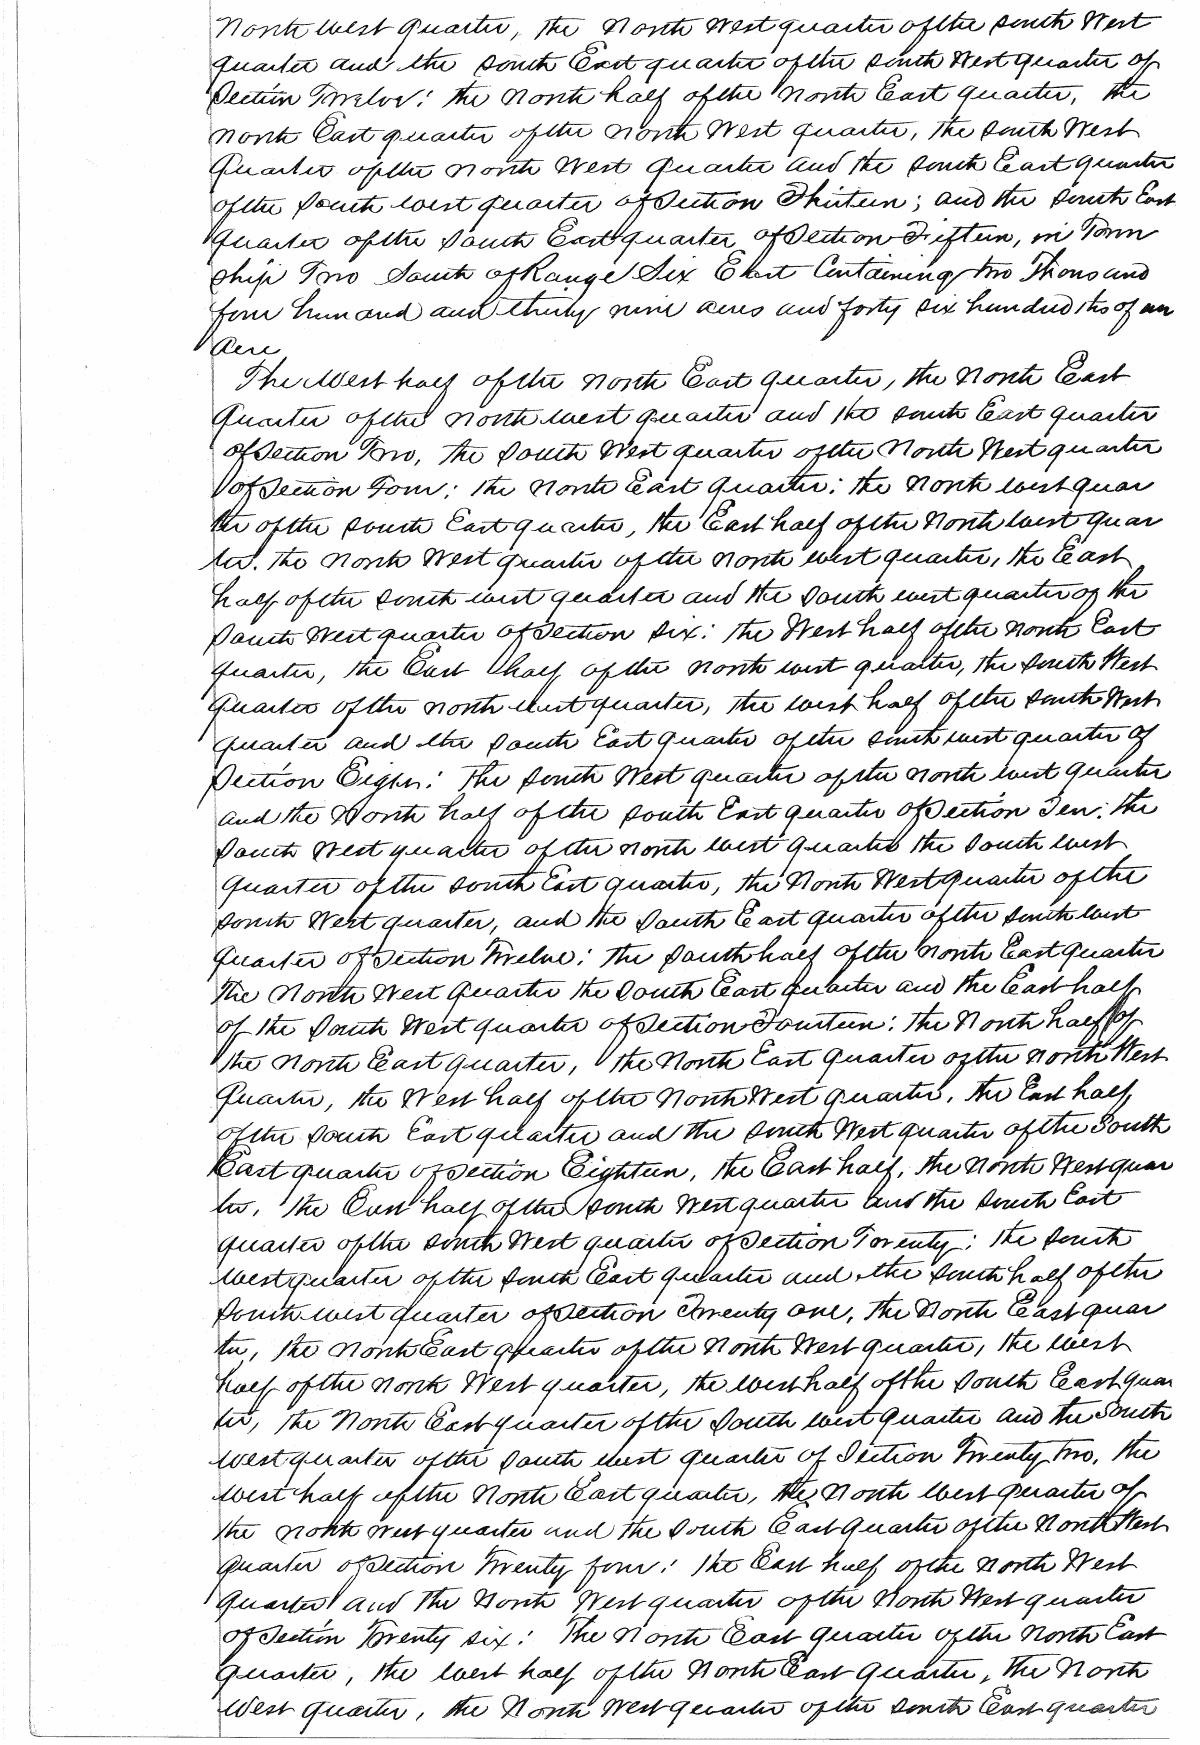 North West quarter, the North West quarter of the South West
quarter and the South East quarter of the South West quarter of
Section Twelve: the North half of the North East quarter, the
North East quarter of the North West quarter, the South West
quarter of the North West quarter and the South East quarter
of the South West quarter of Section Thirteen; and the South East
quarter of the South East quarter of Section Fifteen, in Town
ship Two South of Range Six East Containing two Thousand
four hundred and thirty nine acres and forty six hundredths of an
Acre
The West half of the North East quarter, the North East
quarter of the North West quarter and the South East quarter
of Section Two, the South West quarter of the North West quarter
of Section Four; the North East quarter; the North West quar
ter of the South East quarter, the East half of the North West quar
ter. the North West quarter of the North West quarter, the East
half of the South West quarter and the South West quarter of the
South West quarter of Section Six: the West half of the North East
quarter, the East half of the North West quarter, the South West
quarter of the North West quarter, the West half of the South West
quarter and the South East quarter of the South West quarter of
Section Eight: The South West quarter of the North West quarter
and the North half of the South East quarter of Section Ten: the
South West quarter of the North West quarter the South West
quarter of the South East quarter, the North West quarter of the
South West quarter, and the South East quarter of the South West
quarter of Section Twelve: the South half of the North East quarter
the North West quarter the South East quarter and the East half
of the South West quarter of Section Fourteen: the North half of
the North East quarter, the North East quarter of the North West
quarter, the West half of the North West quarter, the East half
of the South East quarter and the South West quarter of the South
East quarter of Section Eighteen, the East half, the North West quar
ter, the East half of the South West quarter and the South East
quarter of the South West quarter of Section Twenty: the South
West quarter of the South East quarter and the South half of the
South West quarter of Section Twenty one, the North East quar
ter, the North East quarter of the North West quarter, the West
half of the North West quarter, the West half of the South East quar
ter, the North East quarter of the South West quarter and the South
West quarter of the South West quarter of Section Twenty two, the
West half of the North East quarter, the North West quarter of
the North West quarter and the South East quarter of the North West
quarter of Section Twenty four: the East half of the North West
quarter and the North West quarter of the North West quarter
of Section Twenty six: The North East quarter of the North East
quarter, the West half of the North East quarter, the North
West quarter, the North West quarter of the South East quarter